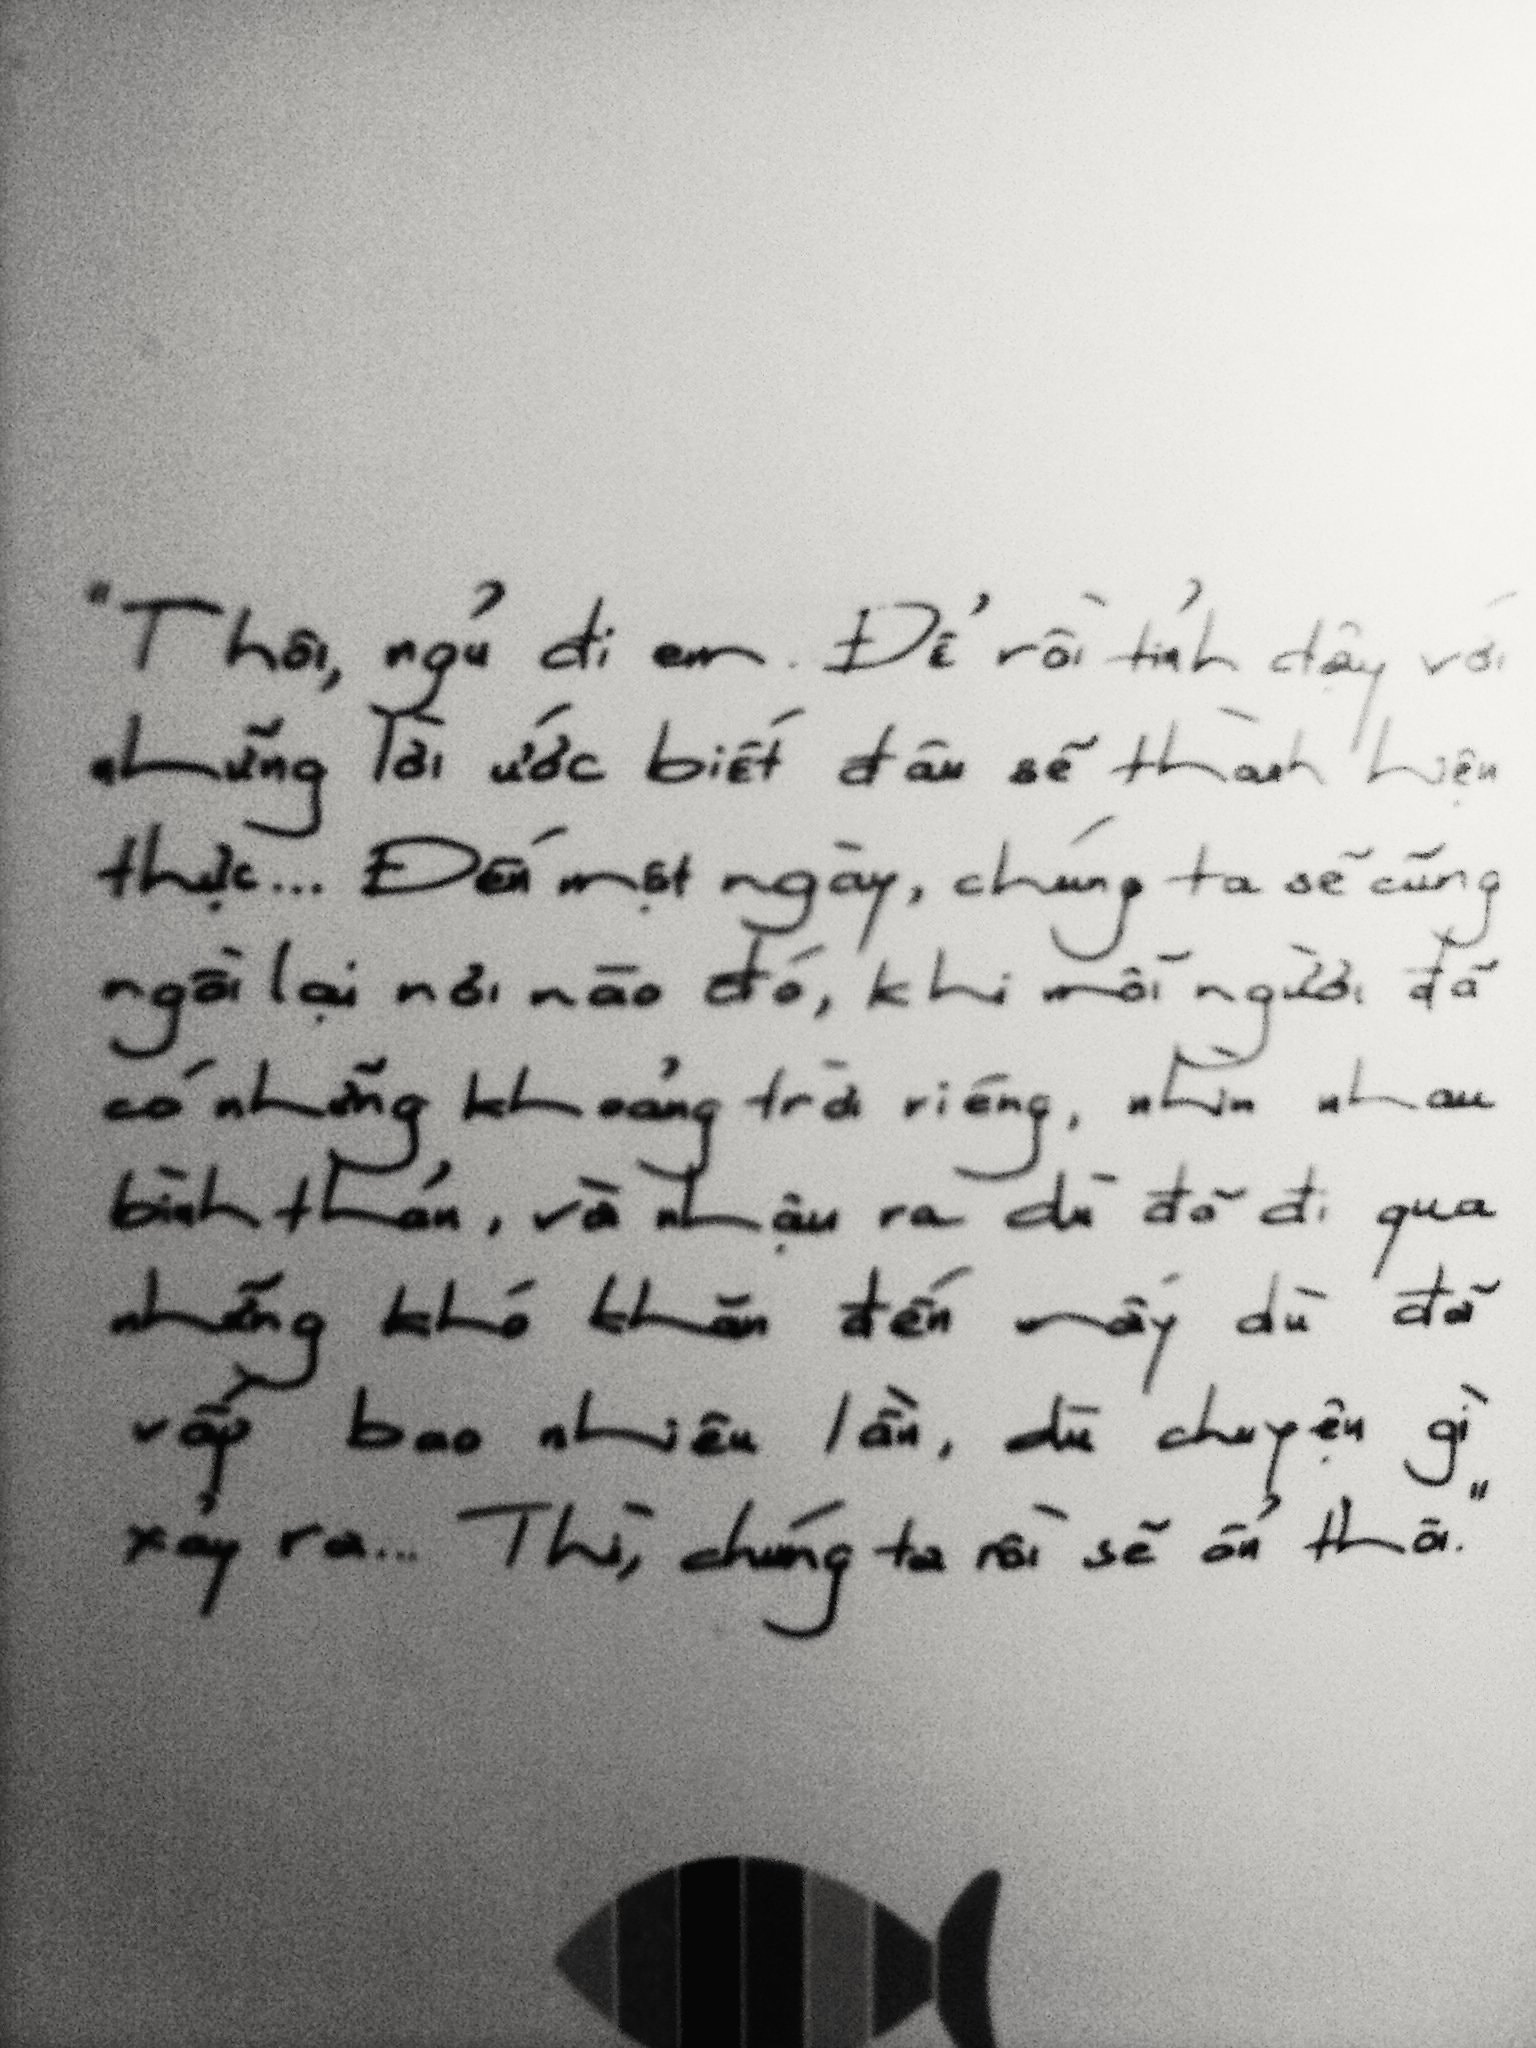 "Thôi, ngủ đi em. Để rồi tỉnh dậy với
những lời ước biết đâu sẽ thành hiện
thực... Đến một ngày, chúng ta sẽ cũng
ngồi lại nơi nào đó, khi mỗi người đã
có những khoảng trời riêng, nhìn nhau
bình thản, và nhận ra dù đã đi qua
những khó khăn đến mấy dù đã
vấp bao nhiêu lần, dù chuyện gì
xảy ra... Thì, chúng ta rồi sẽ ổn thôi."